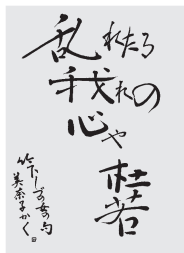 乱れたる
我れの
心や
杜若
竹下しづの女の句
美奈子かく